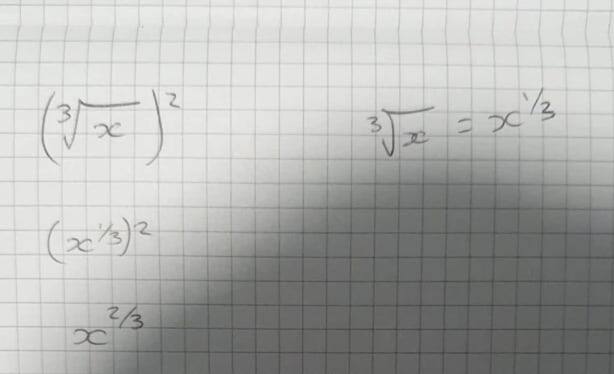 (∛x)²
∛x = x^1/3
(x^1/3)²
x^2/3